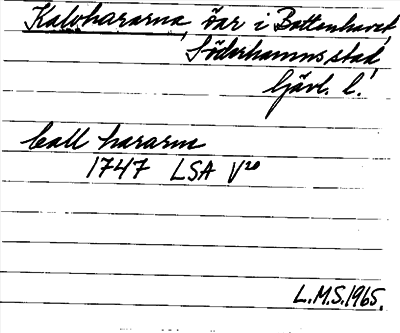 Kalvhararna, öar i Bottenhavet,
Söderhamns stad,
Gävl. l.
Call hararne
1747 LSA V20
L.M.S. 1965.